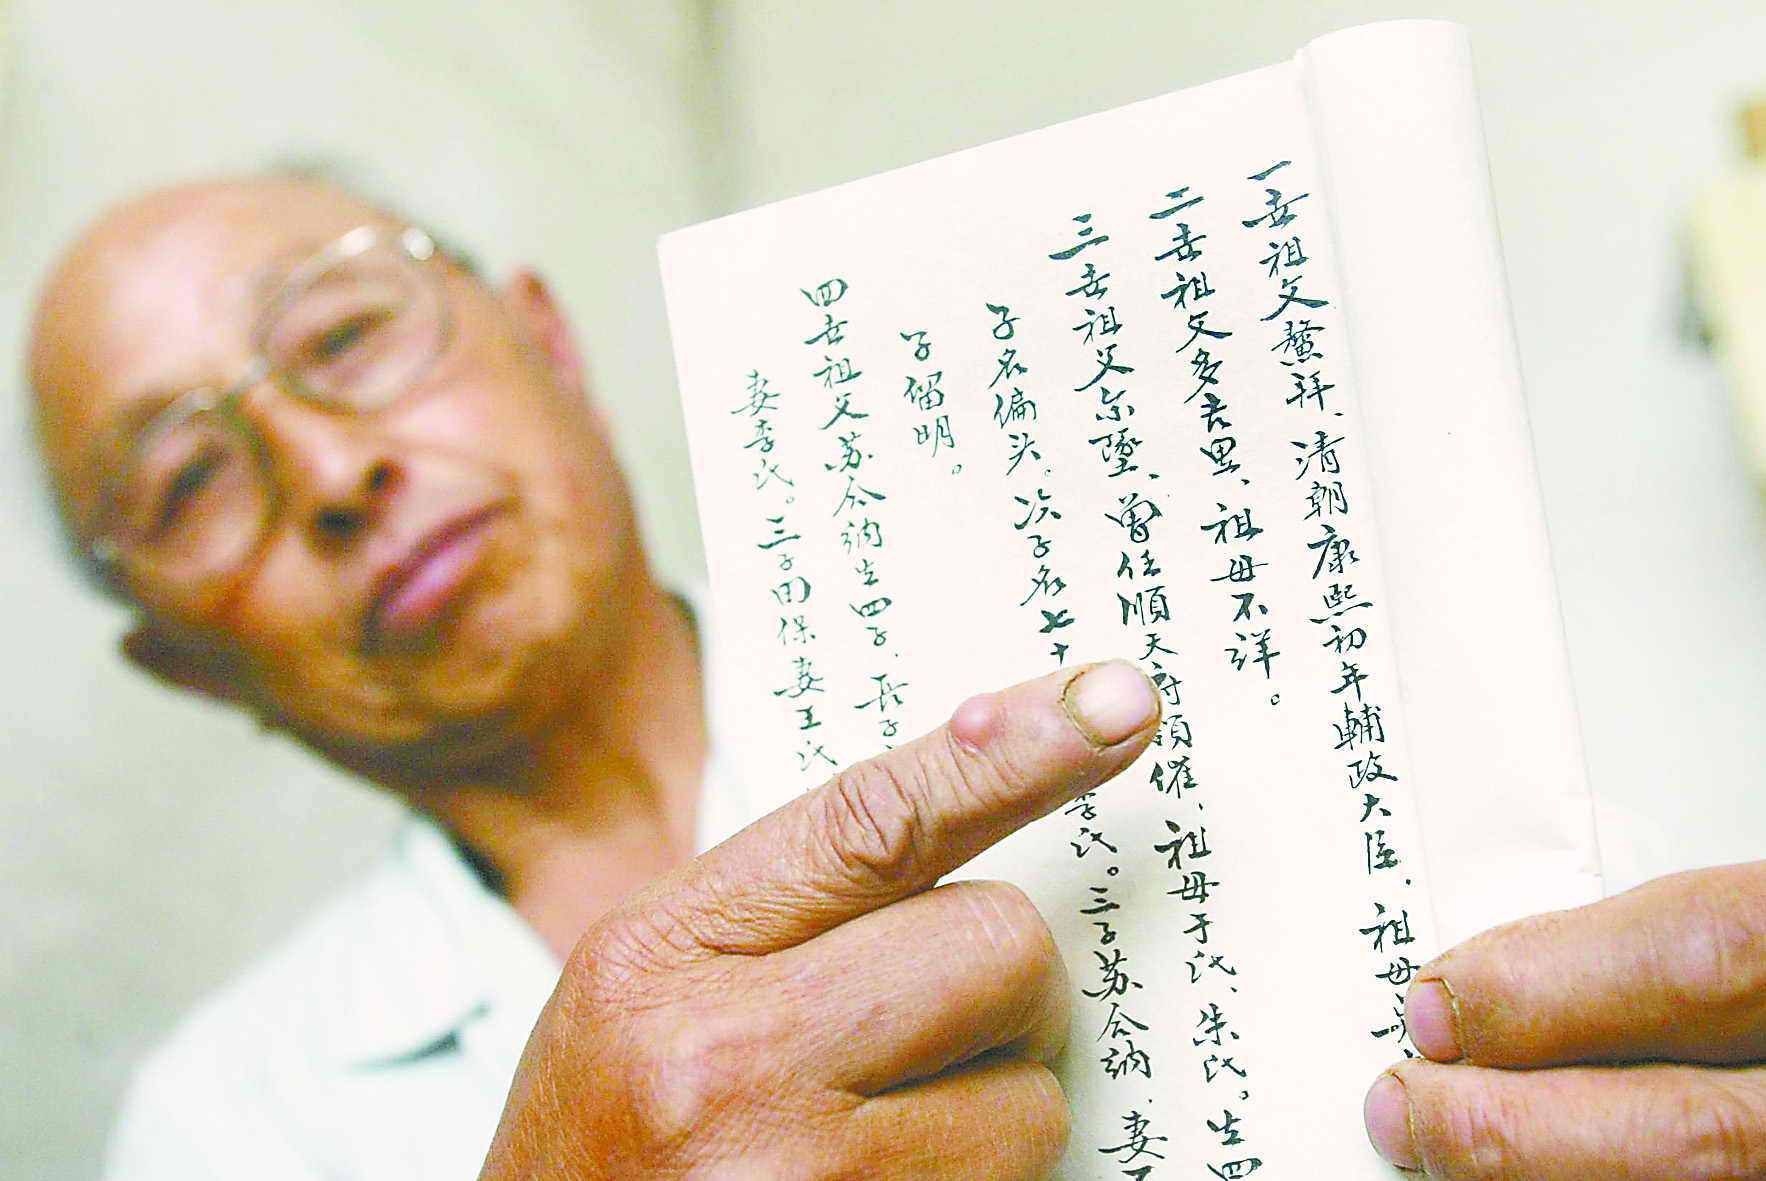 一世祖父鳌拜、清朝康熙初年輔政大臣，祖母
二世祖父多吉里、祖母不详。
三世祖父尔墜、曾任順天府領催、祖母于氏、朱氏。生四
子名偏头。次子名七十 李氏。三子苏合纳，妻王
子留明。
四世祖父苏合纳生四子，長子
妻李氏。三子田保妻王氏